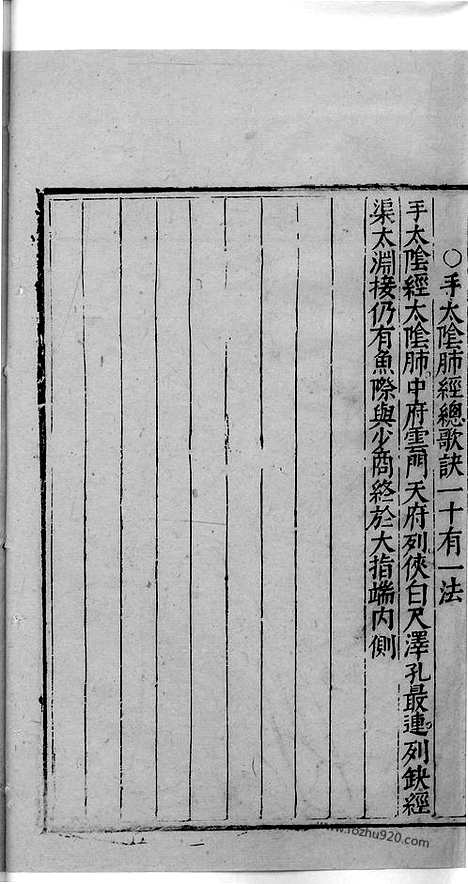 ○手太陰肺經總歌訣一十有一法
手太陰經太陰肺中府雲門天府列俠白尺澤孔最連列缺經
渠太淵接仍有魚際與少商終於大指端內側
www.fozhu920.com